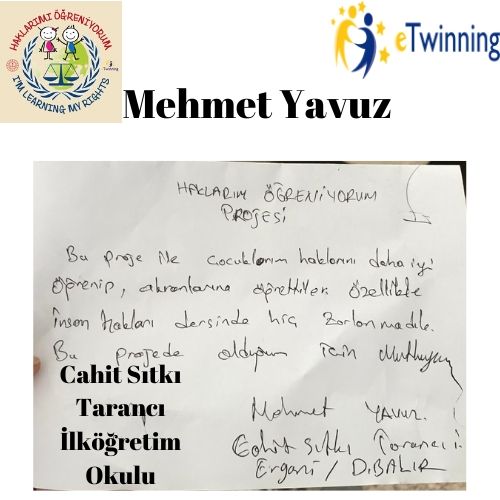 HAKLARIMI ÖĞRENİYORUM
I'M LEARNING MY RIGHTS
eTwinning
eTwinning
Mehmet Yavuz
HAKLARIM ÖĞRENİYORUM
PROJESİ
Bu proje ile çocuklarım haklarını daha iyi
öğrenip, akranlarına öğrettiler. Özellikle
İnsan Hakları dersinde hiç zorlanmadılar.
Bu projede olduğum için Mutluyum
Mehmet YAVUZ
Cahit Sıtkı Tarancı İ.
Ergani / D.BAKIR
Cahit Sıtkı
Tarancı
İlköğretim
Okulu